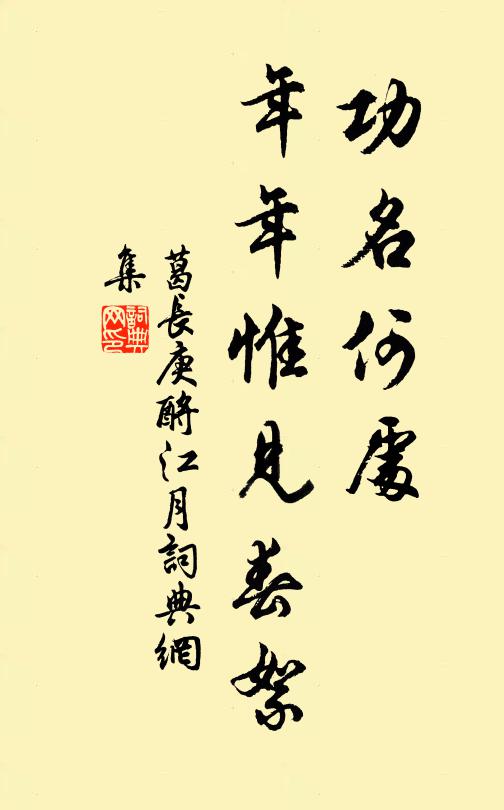 功名何處
年年惟見春絮
葛長庚酹江月詞典網
集
詞典
网印